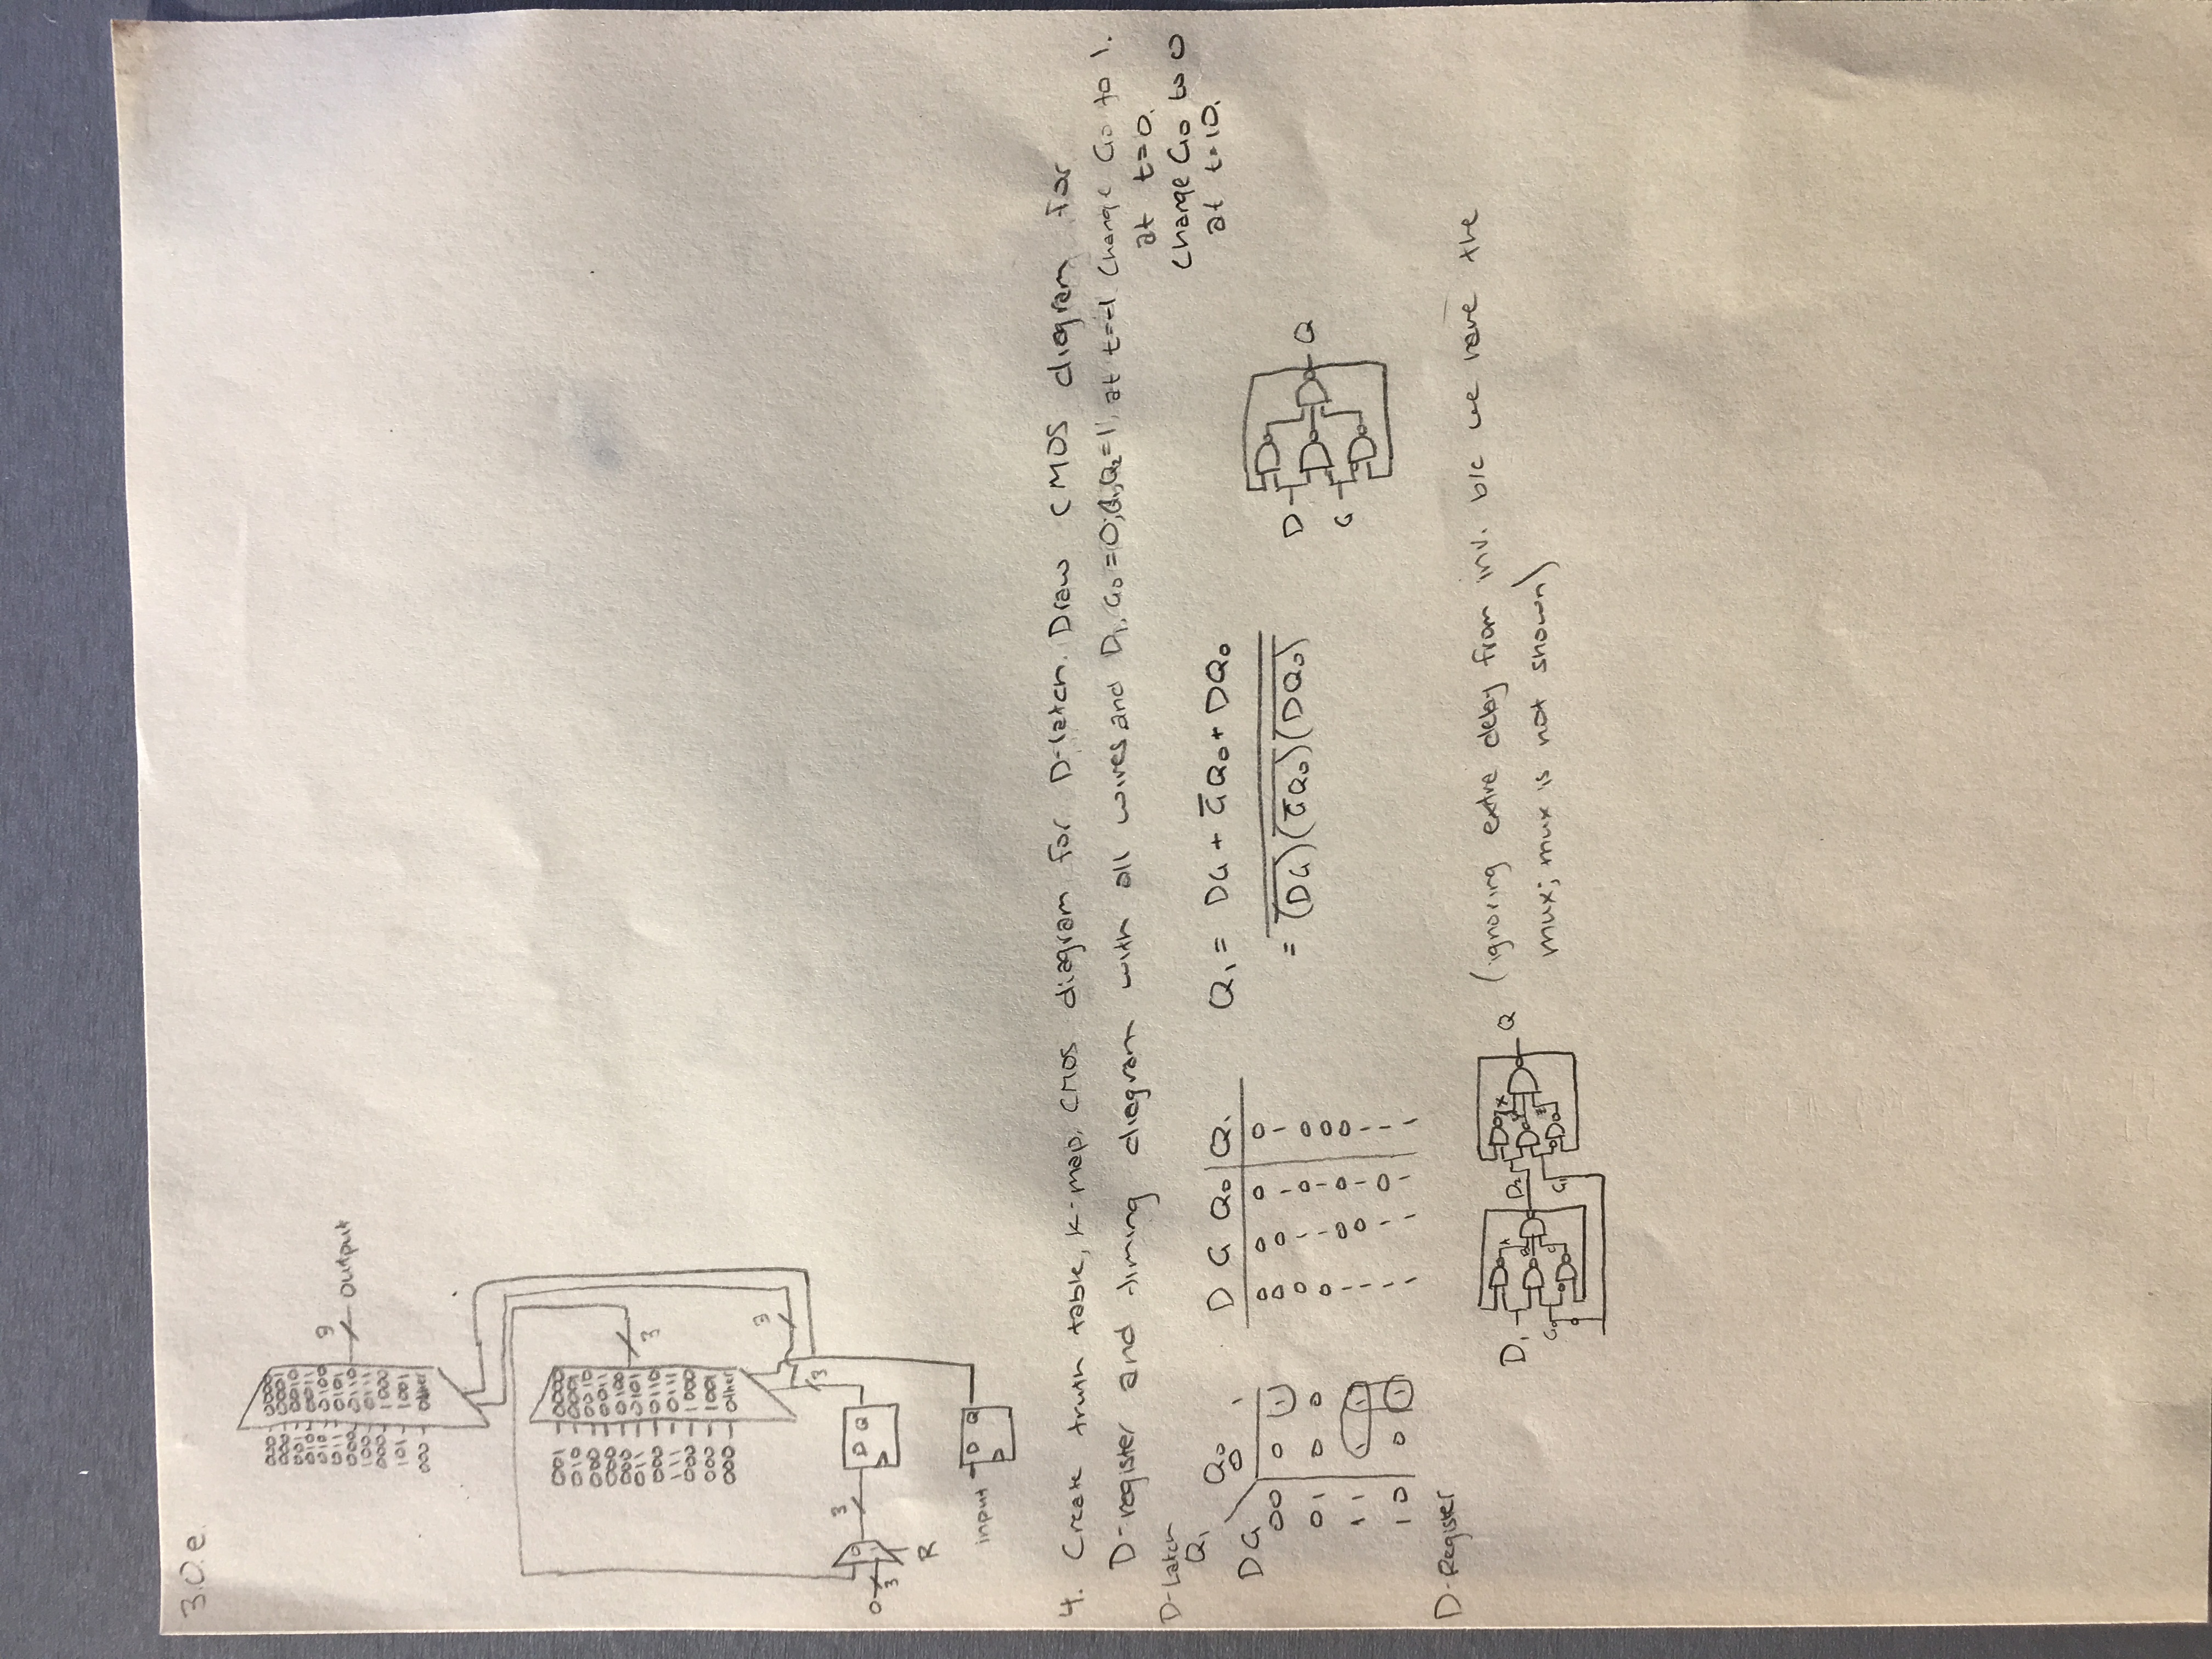 3.0.e.
000 0000
000 0001
001 0010
010 0011
010 0100
011 0101
000 0110
100 0111
000 1000
101 1001
000 Other
output
001 0000
010 0001
000 0010
000 0011
000 0100
011 0101
000 0110
111 0111
000 1000
000 1001
000 Other
3
3
3
3
0 3
0
D Q
R
input D Q
4. Create truth table, k-map, CMOS diagram for D-latch. Draw CMOS diagram for
D-register and timing diagram with all wires and D₁, G₀=0; Q₁,Q₂=1 at t=-1. Change G₀ to 1.
at t=0.
Change G₀ to 0
at t=10.
D-Latch
Q₁
Q₀
DG 0 1
00 0 1
01 0 0
11 1 1
10 0 1
D G Q₀ Q₁
0 0 0 0
0 0 1 1
0 1 0 0
0 1 1 0
1 0 0 0
1 0 1 1
1 1 0 1
1 1 1 1
Q₁ = DG + G̅Q₀ + DQ₀
= (DG)(G̅Q₀)(DQ₀)
D
G
Q
D-Register
D₁ G₀ A B C D₂ G₁ X Q
(ignoring extra delay from inv. b/c we have the
mux; mux is not shown)